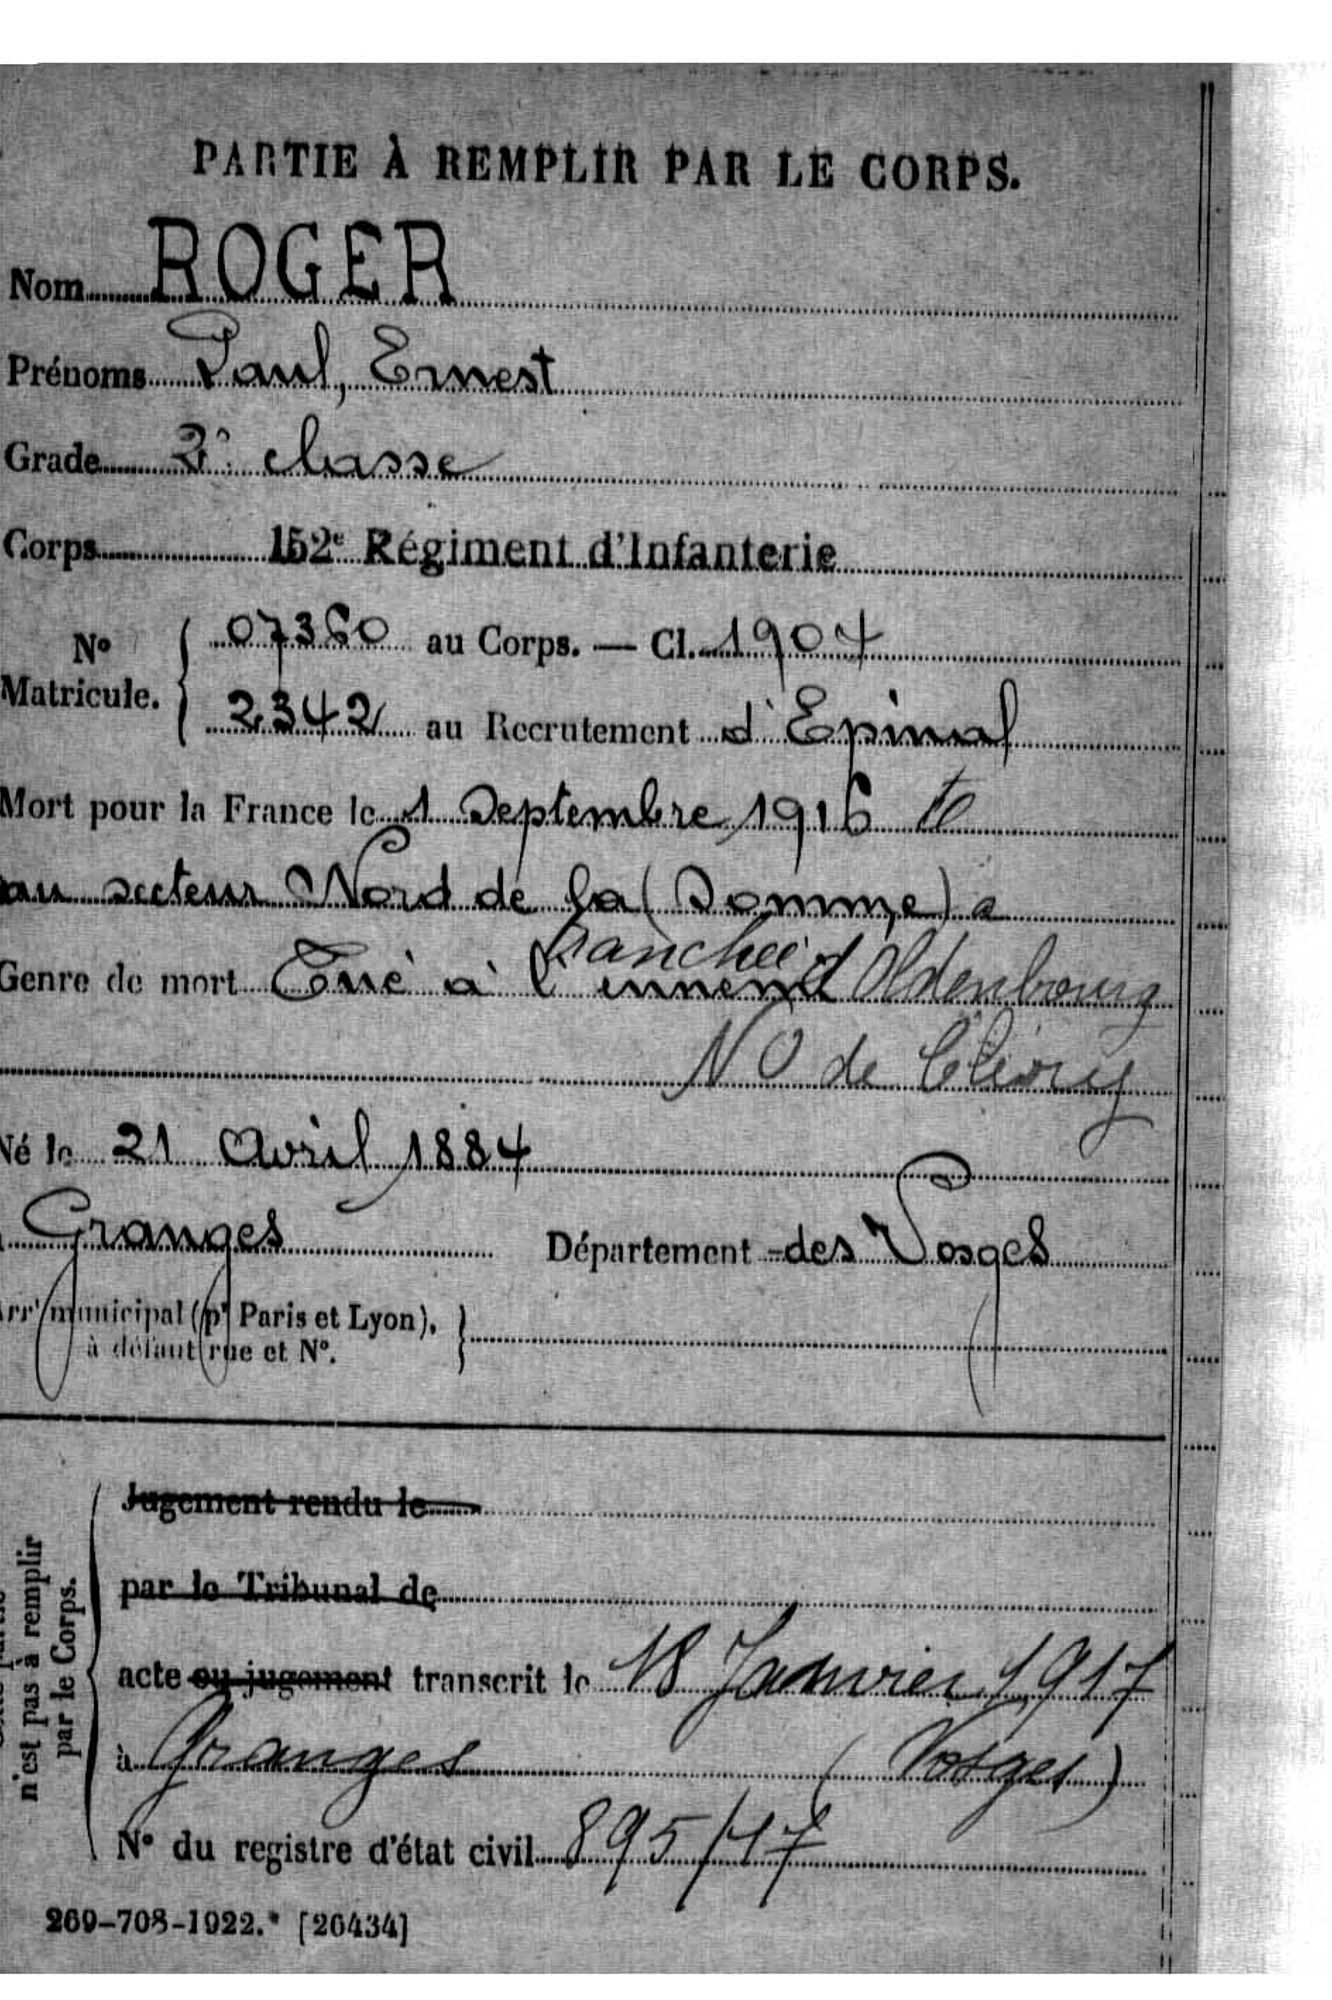 PARTIE À REMPLIR PAR LE CORPS.
Nom ROGER
Prénoms Paul, Ernest
Grade 2e classe
Corps 152e Régiment d'Infanterie
No Matricule. { 07360 au Corps. — Cl. 1904
2342 au Recrutement d'Epinal
Mort pour la France le 1 Septembre 1916
au secteur Nord de la (Somme)
tranchée d'Oldenbourg
Genre de mort Tué à l'ennemi
NO de Cléry
Né le 21 Avril 1884
Granges Département des Vosges
municipal (pr Paris et Lyon), }
à défaut rue et No.
Jugement rendu le
par le Tribunal de
acte ou jugement transcrit le 18 Janvier 1917
à Granges (Vosges)
No du registre d'état civil 895/17
n'est pas à remplir
par le Corps.
269-708-1922. [26434]